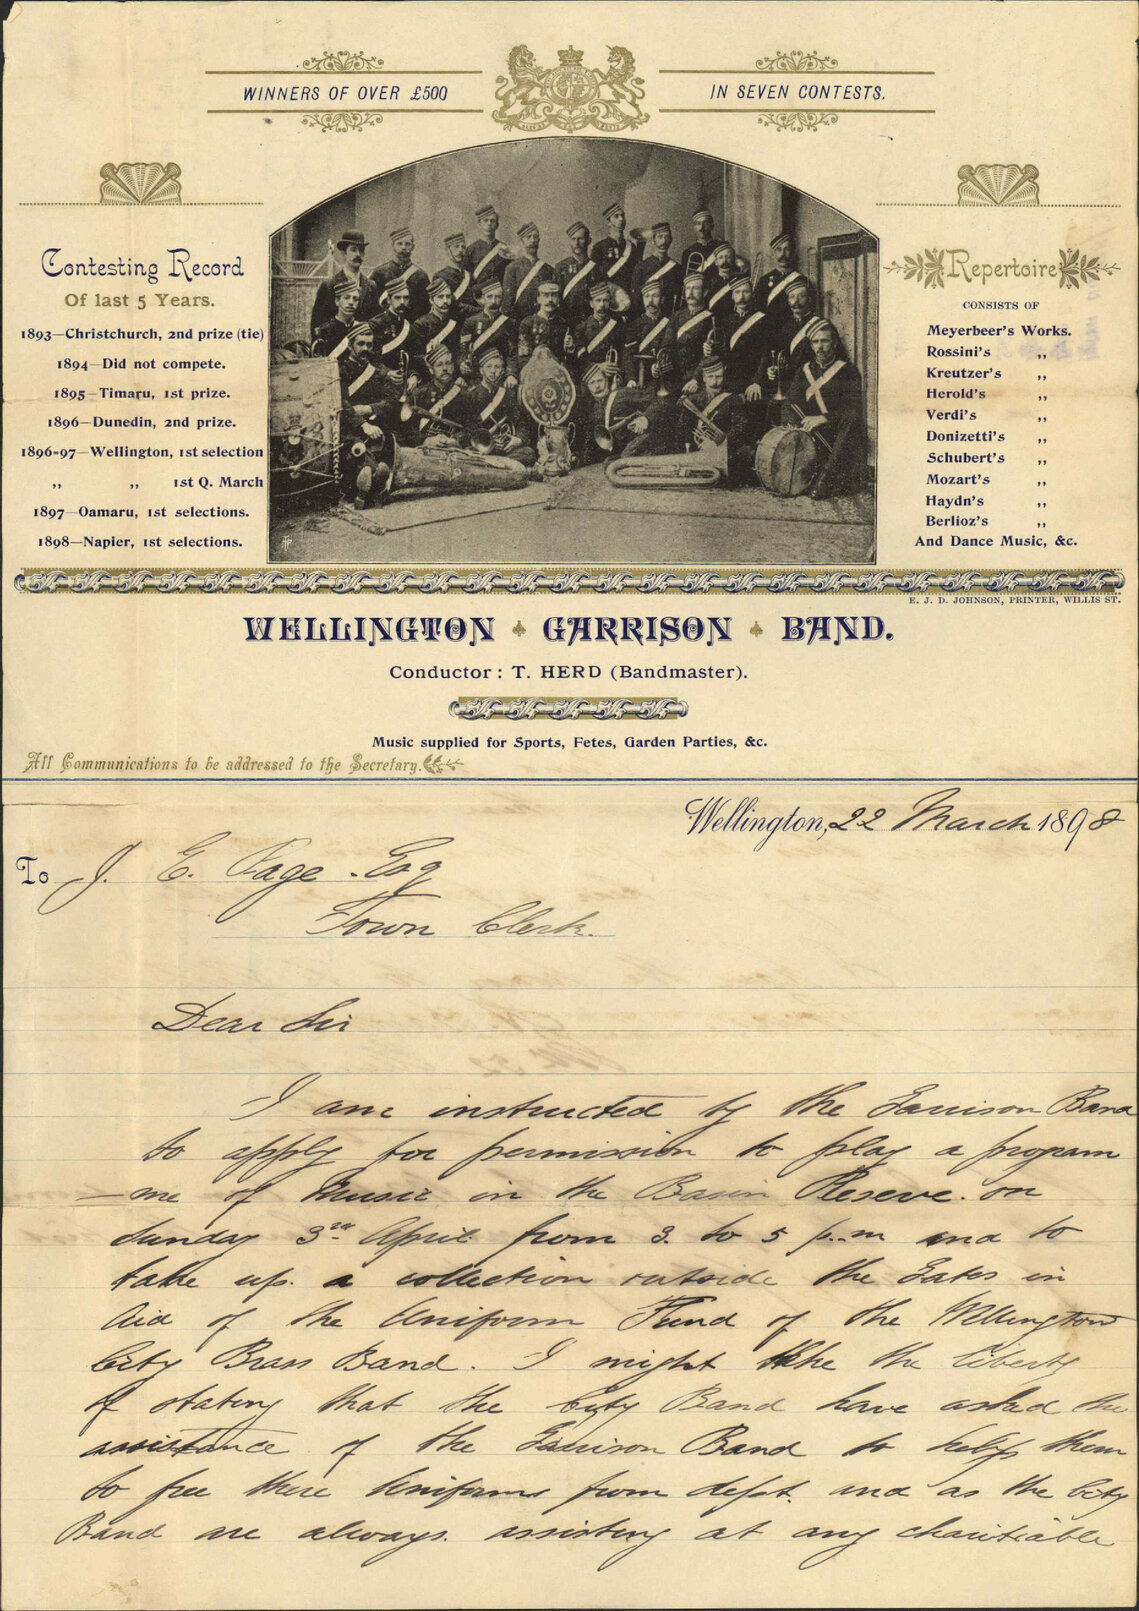 WINNERS OF OVER £500
IN SEVEN CONTESTS.
Contesting Record
Of last 5 Years.
1893—Christchurch, 2nd prize (tie)
1894—Did not compete.
1895—Timaru, 1st prize.
1896—Dunedin, 2nd prize.
1896-97—Wellington, 1st selection
,, ,, 1st Q. March
1897—Oamaru, 1st selections.
1898—Napier, 1st selections.
Repertoire
CONSISTS OF
Meyerbeer's Works.
Rossini's ,,
Kreutzer's ,,
Herold's ,,
Verdi's ,,
Donizetti's ,,
Schubert's ,,
Mozart's ,,
Haydn's ,,
Berlioz's ,,
And Dance Music, &c.
E. J. D. JOHNSON, PRINTER, WILLIS ST.
WELLINGTON GARRISON BAND.
Conductor: T. HERD (Bandmaster).
Music supplied for Sports, Fetes, Garden Parties, &c.
All Communications to be addressed to the Secretary.
Wellington, 22 March 1898
To J. E. Page. Esq
Town Clerk.
Dear Sir
I am instructed by the Garrison Band
to apply for permission to play a program
—me of Music in the Basin Reserve. on
Sunday 3rd April from 3. to 5 p.m and to
take up. a collection outside the Gates in
Aid of the Uniform Fund of the Wellington
City Brass Band. I might take the liberty
of stating that the City Band have asked the
assistance of the Garrison Band to help them
to free there Uniforms from debt. and as the City
Band are always. assisting at any charitiable